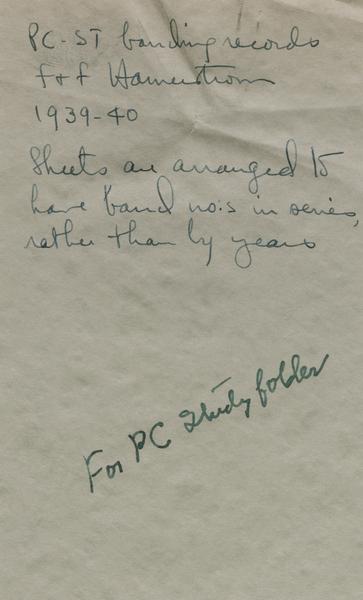 PC-ST banding records
F & F Hamerstrom
1939-40
Sheets are arranged to
have band no:s in series,
rather than by years
For PC Study folder